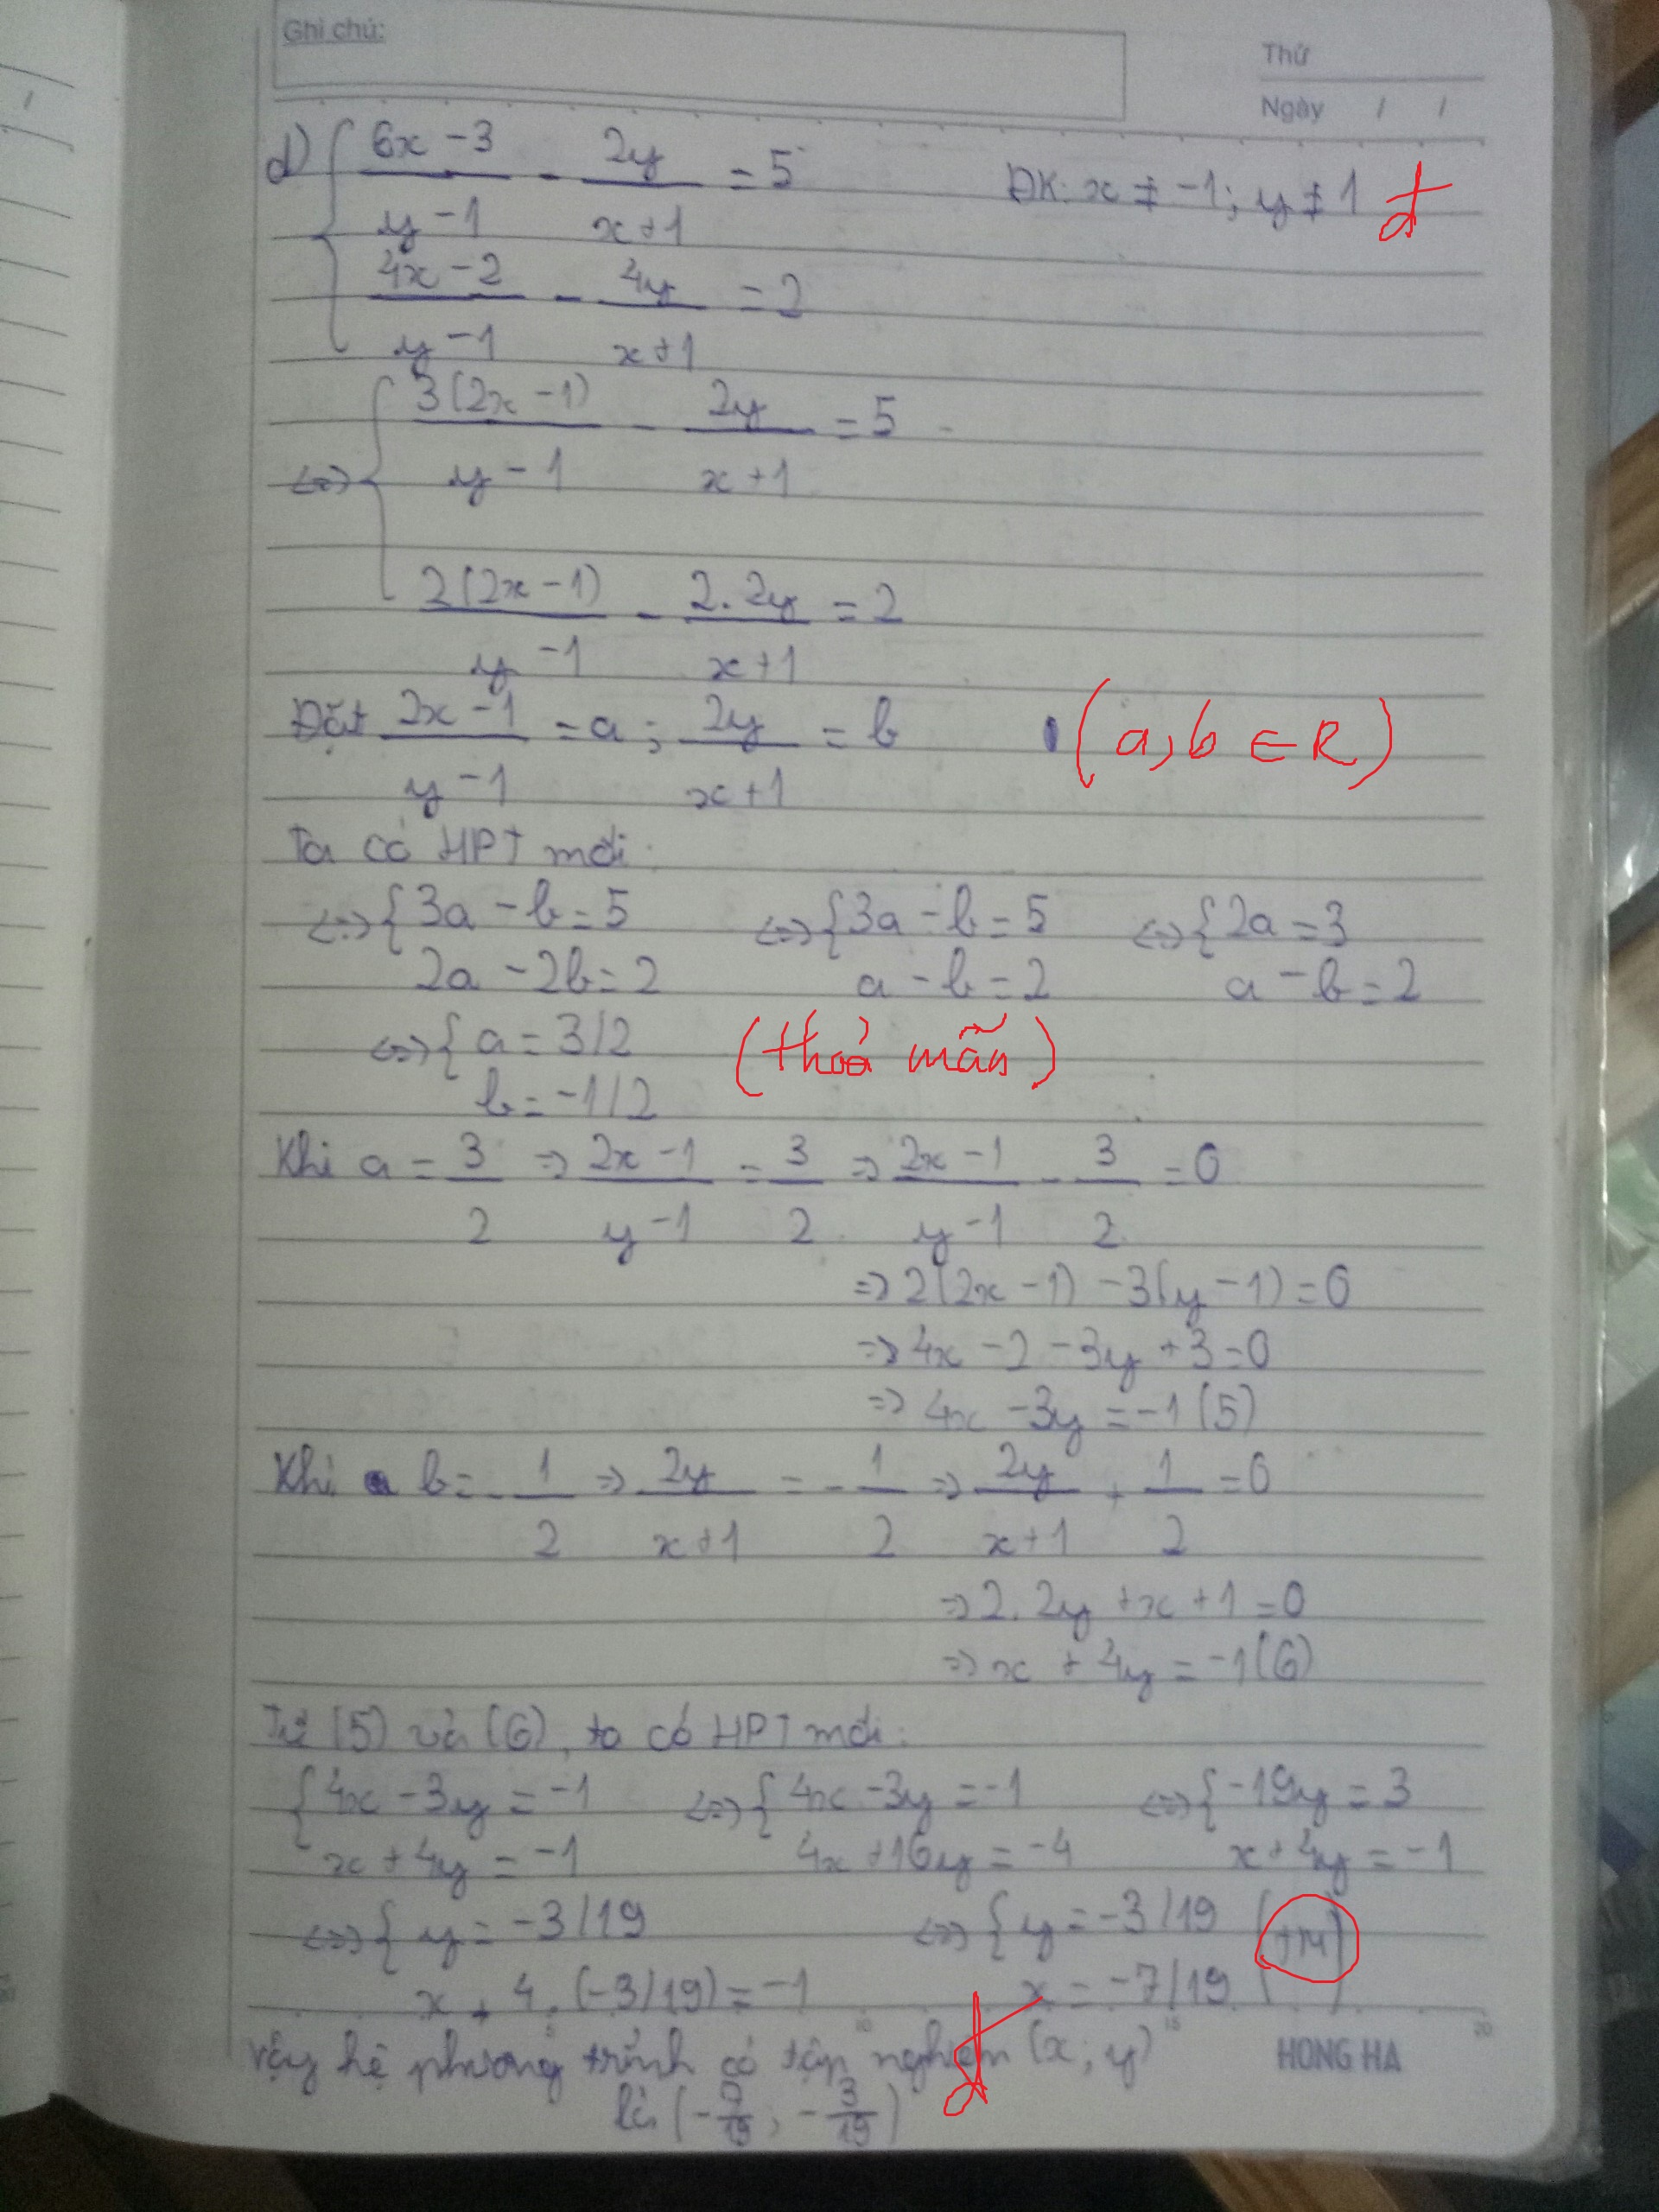 Ghi chú:
Thứ
Ngày / /
d) { 6x - 3 / y - 1 - 2y / x + 1 = 5 ĐK: x ≠ -1; y ≠ 1 đ
4x - 2 / y - 1 - 4y / x + 1 = 2
<=> { 3(2x - 1) / y - 1 - 2y / x + 1 = 5
2(2x - 1) / y - 1 - 2.2y / x + 1 = 2
Đặt 2x - 1 / y - 1 = a; 2y / x + 1 = b (a, b ∈ R)
Ta có HPT mới:
<=> { 3a - b = 5 <=> { 3a - b = 5 <=> { 2a = 3
2a - 2b = 2 a - b = 2 a - b = 2
<=> { a = 3/2 (thoả mãn)
b = -1/2
Khi a = 3 / 2 => 2x - 1 / y - 1 = 3 / 2 => 2x - 1 / y - 1 - 3 / 2 = 0
=> 2(2x - 1) - 3(y - 1) = 0
=> 4x - 2 - 3y + 3 = 0
=> 4x - 3y = -1 (5)
Khi b = - 1 / 2 => 2y / x + 1 = - 1 / 2 => 2y / x + 1 + 1 / 2 = 0
=> 2.2y + x + 1 = 0
=> x + 4y = -1 (6)
Từ (5) và (6), ta có HPT mới:
{ 4x - 3y = -1 <=> { 4x - 3y = -1 <=> { -19y = 3
x + 4y = -1 4x + 16y = -4 x + 4y = -1
<=> { y = -3/19 <=> { y = -3/19 (TM)
x + 4.(-3/19) = -1 x = -7/19
Vậy hệ phương trình có tập nghiệm (x; y) đ
là (-7/19; -3/19)
HONG HA